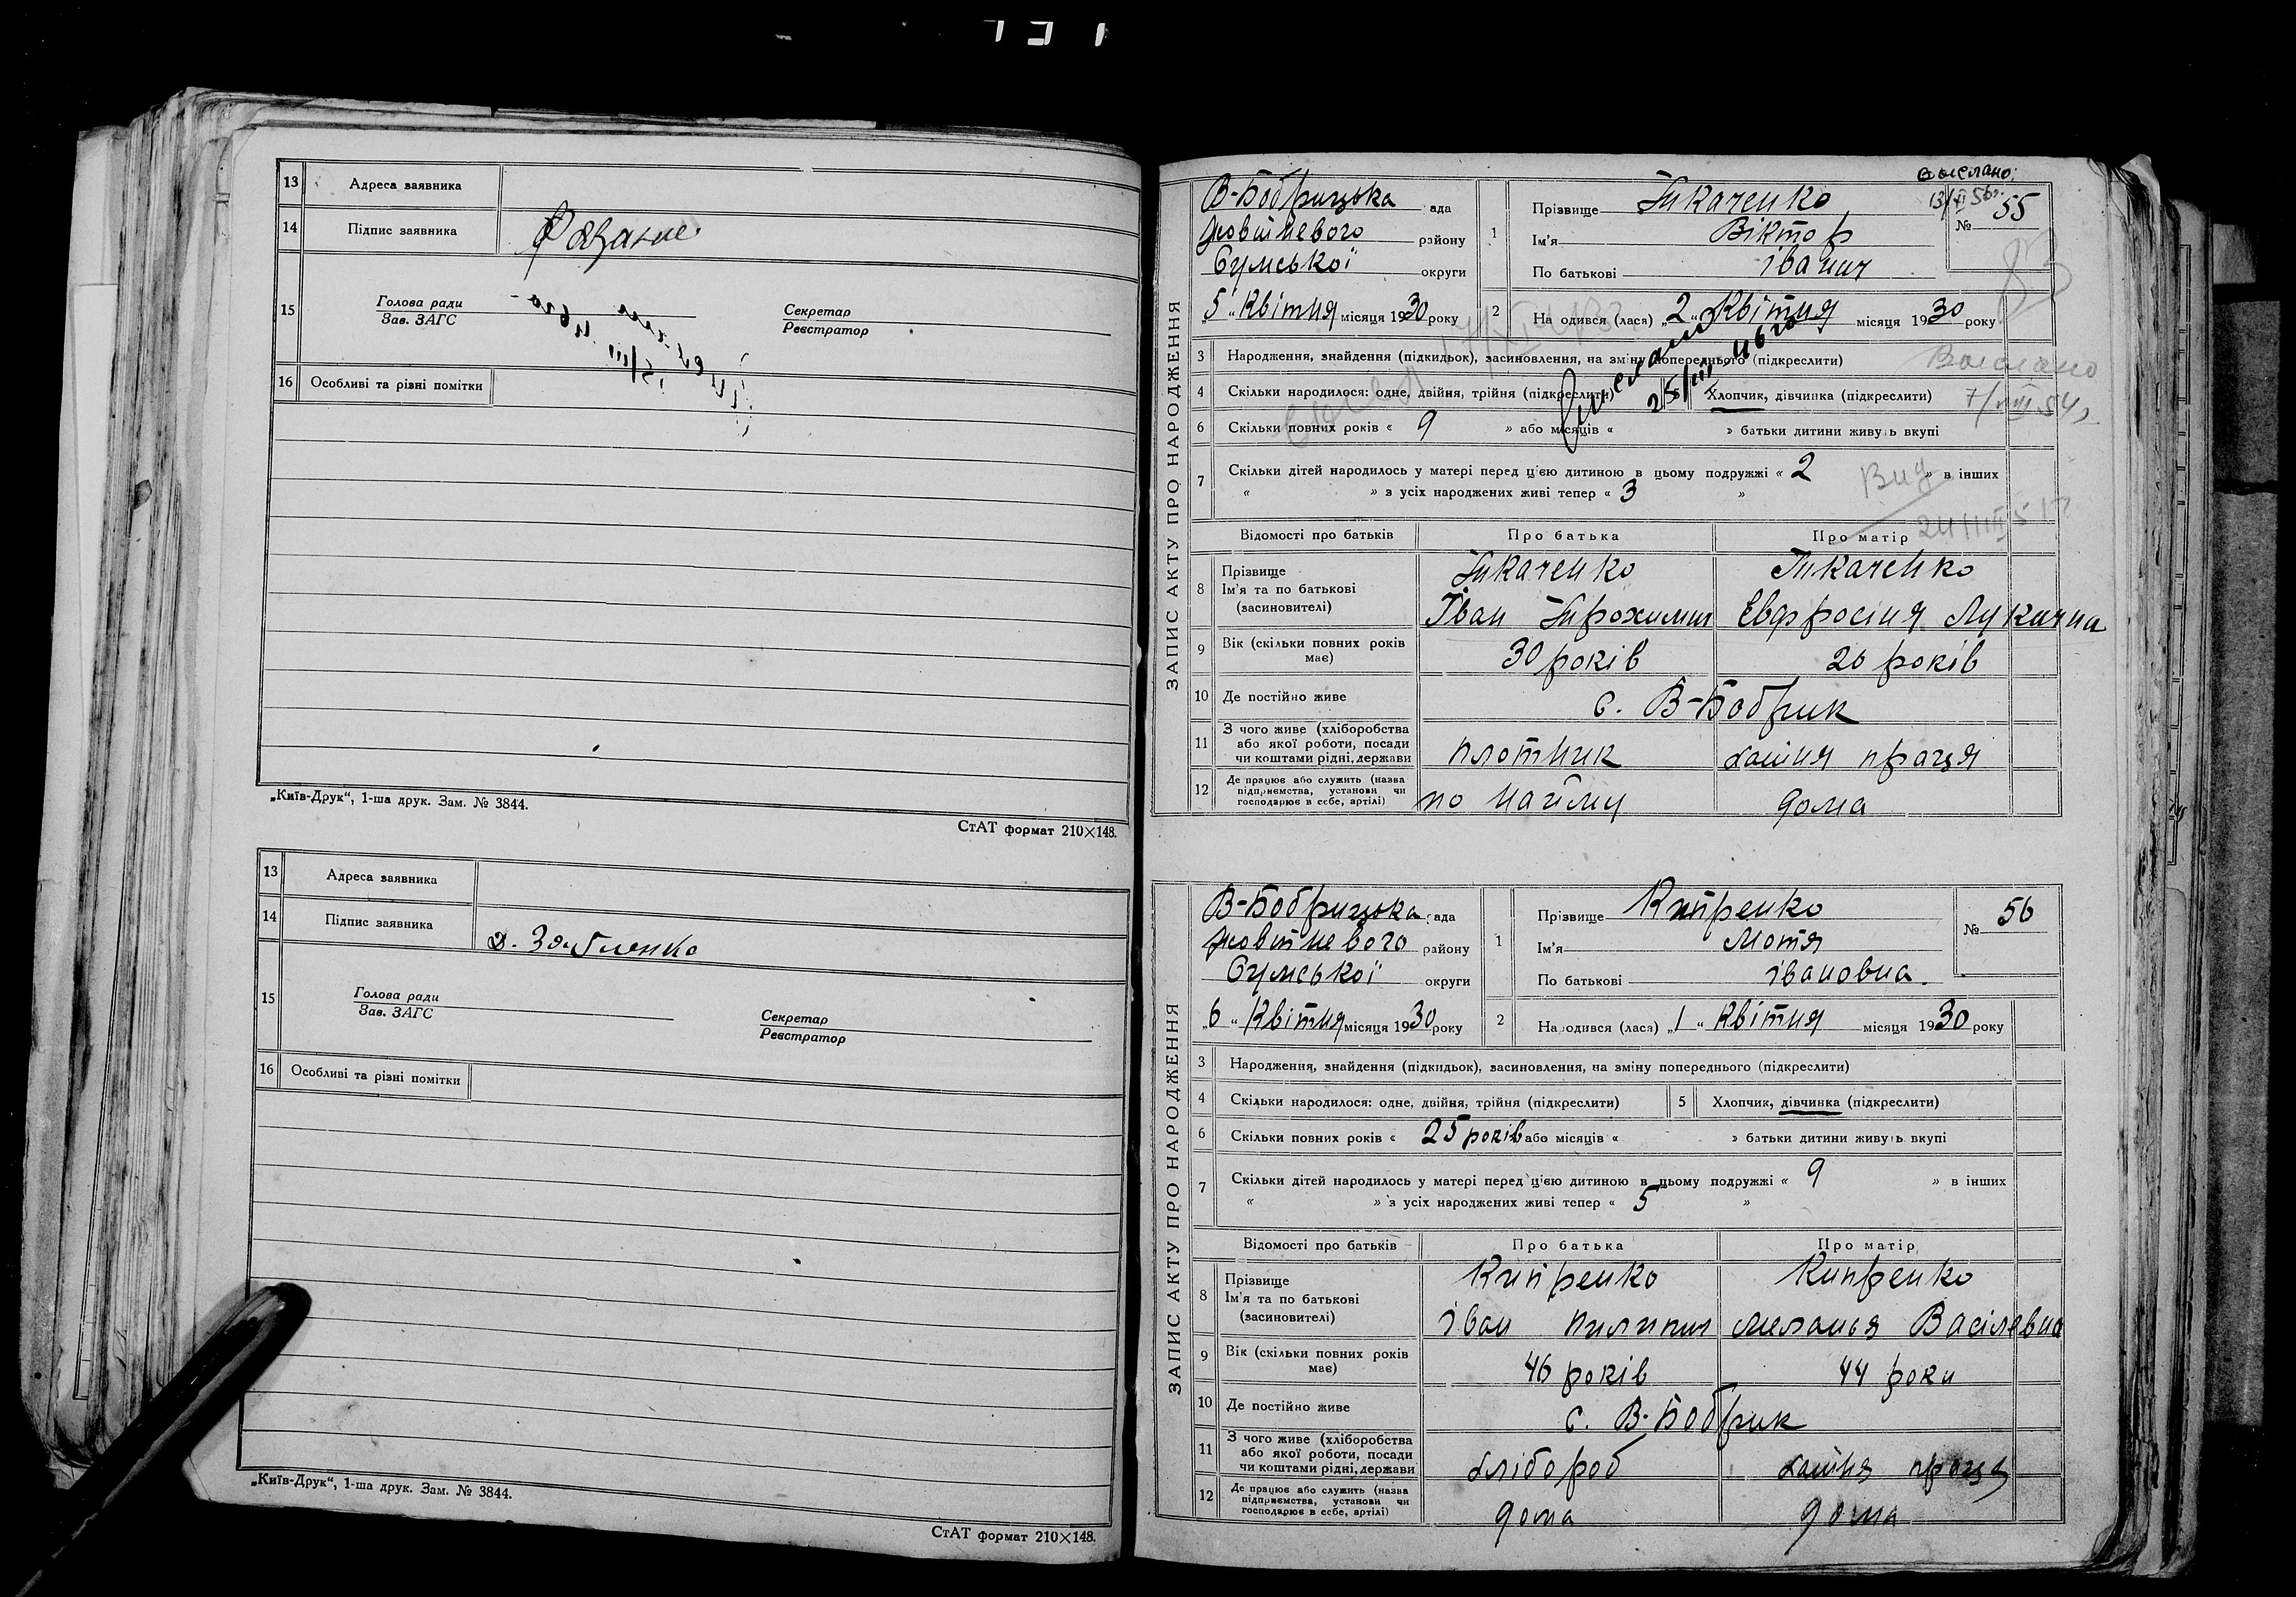 13 Адреса заявника
14 Підпис заявника
15 Голова ради
Зав. ЗАГС
Секретар
Реєстратор
16 Особливі та різні помітки
„Київ-Друк“, 1-ша друк. Зам. № 3844.
СтАТ формат 210×148.
13 Адреса заявника
14 Підпис заявника
15 Голова ради
Зав. ЗАГС
Секретар
Реєстратор
16 Особливі та різні помітки
„Київ-Друк“, 1-ша друк. Зам. № 3844.
СтАТ формат 210×148.
ЗАПИС АКТУ ПРО НАРОДЖЕННЯ
В-Бобрицька рада
Жовтневого району
Сумської округи
„5“ Квітня місяця 1930 року
1 Прізвище Ткаченко
Ім'я Віктор
По батькові іванич
№ 55
83
2 Народився (лася) „2“ Квітня місяця 1930 року
3 Народження, знайдення (підкидьок), засиновлення, на зміну попереднього (підкреслити)
Вислано
4 Скільки народилося: одне, двійня, трійня (підкреслити) 5 Хлопчик, дівчинка (підкреслити)
6 Скільки повних років « 9 » або місяців « » батьки дитини живуть вкупі
7 Скільки дітей народилось у матері перед цією дитиною в цьому подружжі « 2 » в інших
« » з усіх народжених живі тепер « 3 »
Вид
Відомості про батьків Про батька Про матір
8 Прізвище Ткаченко Ткаченко
Ім'я та по батькові
(засиновителі) Іван Трохимич Евфросіня Лукична
9 Вік (скільки повних років має) 30 років 26 років
10 Де постійно живе с. В-Бобрик
11 З чого живе (хліборобства
або якої роботи, посади
чи коштами рідні, держави плотник хатня праця
12 Де працює або служить (назва
підприємства, установи чи
господарює в себе, артілі) по найму дома
ЗАПИС АКТУ ПРО НАРОДЖЕННЯ
В-Бобрицька рада
Жовтневого району
Сумської округи
„6“ Квітня місяця 1930 року
1 Прізвище Кипренко
Ім'я Мотя
По батькові івановна.
№ 56
2 Народився (лася) „1“ Квітня місяця 1930 року
3 Народження, знайдення (підкидьок), засиновлення, на зміну попереднього (підкреслити)
4 Скільки народилося: одне, двійня, трійня (підкреслити) 5 Хлопчик, дівчинка (підкреслити)
6 Скільки повних років « 25 років або місяців « » батьки дитини живуть вкупі
7 Скільки дітей народилось у матері перед цією дитиною в цьому подружжі « 9 » в інших
« » з усіх народжених живі тепер « 5 »
Відомості про батьків Про батька Про матір
8 Прізвище Кипренко Кипренко
Ім'я та по батькові
(засиновителі) іван пилипич меланья Василевна
9 Вік (скільки повних років має) 46 років 44 роки
10 Де постійно живе с. В-Бобрик
11 З чого живе (хліборобства
або якої роботи, посади
чи коштами рідні, держави хлібороб хатня праця
12 Де працює або служить (назва
підприємства, установи чи
господарює в себе, артілі) дома дома